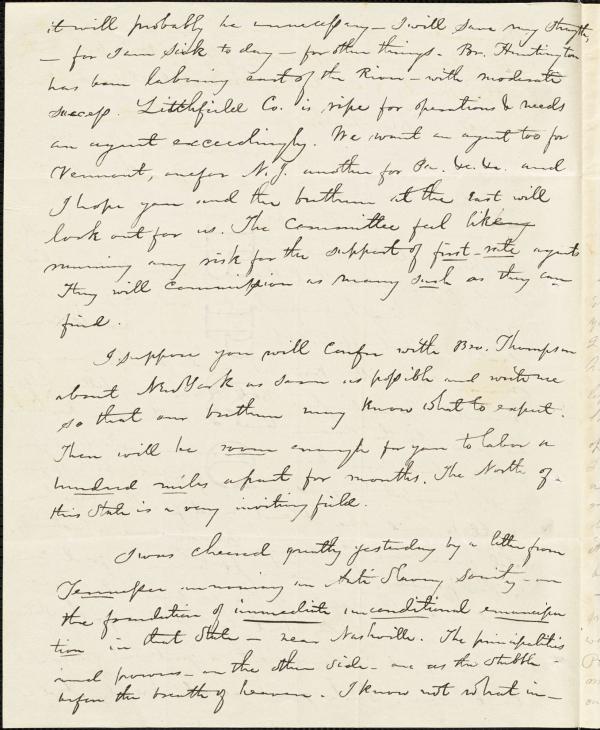 it will probably be unnecessary – I will save my strength,
– for I am sick to day – for other things. Br. Huntington
has been laboring east of the River – with moderate
success. Litchfield Co. is ripe for operations & needs
an agent exceedingly. We want an agent too for
Vermont, one for N.J. another for Pa. &c. &c. and
I hope you and the brethren at the East will
look out for us. The Committee feel like
running any risk for the support of first-rate agents
They will commission as many such as they can
find.
I suppose you will confer with Bro. Thompson
about New York as soon as possible and write me
so that our brethren may know what to expect.
There will be room enough for you to labor a
hundred miles apart for months. The North of
this State is a very inviting field.
I was cheered greatly yesterday by a letter from
Tennessee announcing an Anti Slavery Society – on
the foundation of immediate unconditional emancipa
tion in that State – near Nashville. The principalities
and powers – on the other side – are as the stubble
before the breath of heaven. I know not what in–